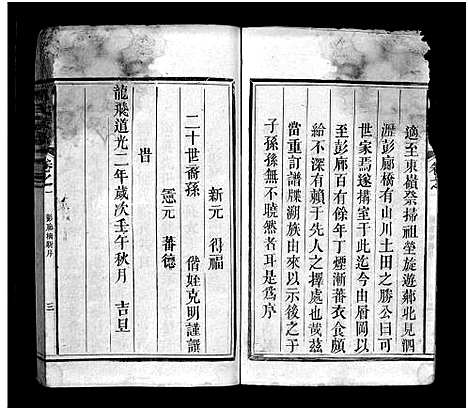 適至東嶺祭掃祖塋旋遊鄰北見泗
瀝彭廊橋有山川土田之勝公曰可
世家焉遂搆室于此今由厨岡以
至彭廊百有餘年丁煙漸蕃衣食頗
給不深有賴于先人之擇處也哉茲
當重訂譜牒湖族由來以示後之子
子孫孫無不曉然者耳是爲序
新元 得福
二十世裔孫 偕姪克明謹譔
憲元 蕃德
旹
龍飛道光二年歲次壬午秋月 吉旦
卷之一
三